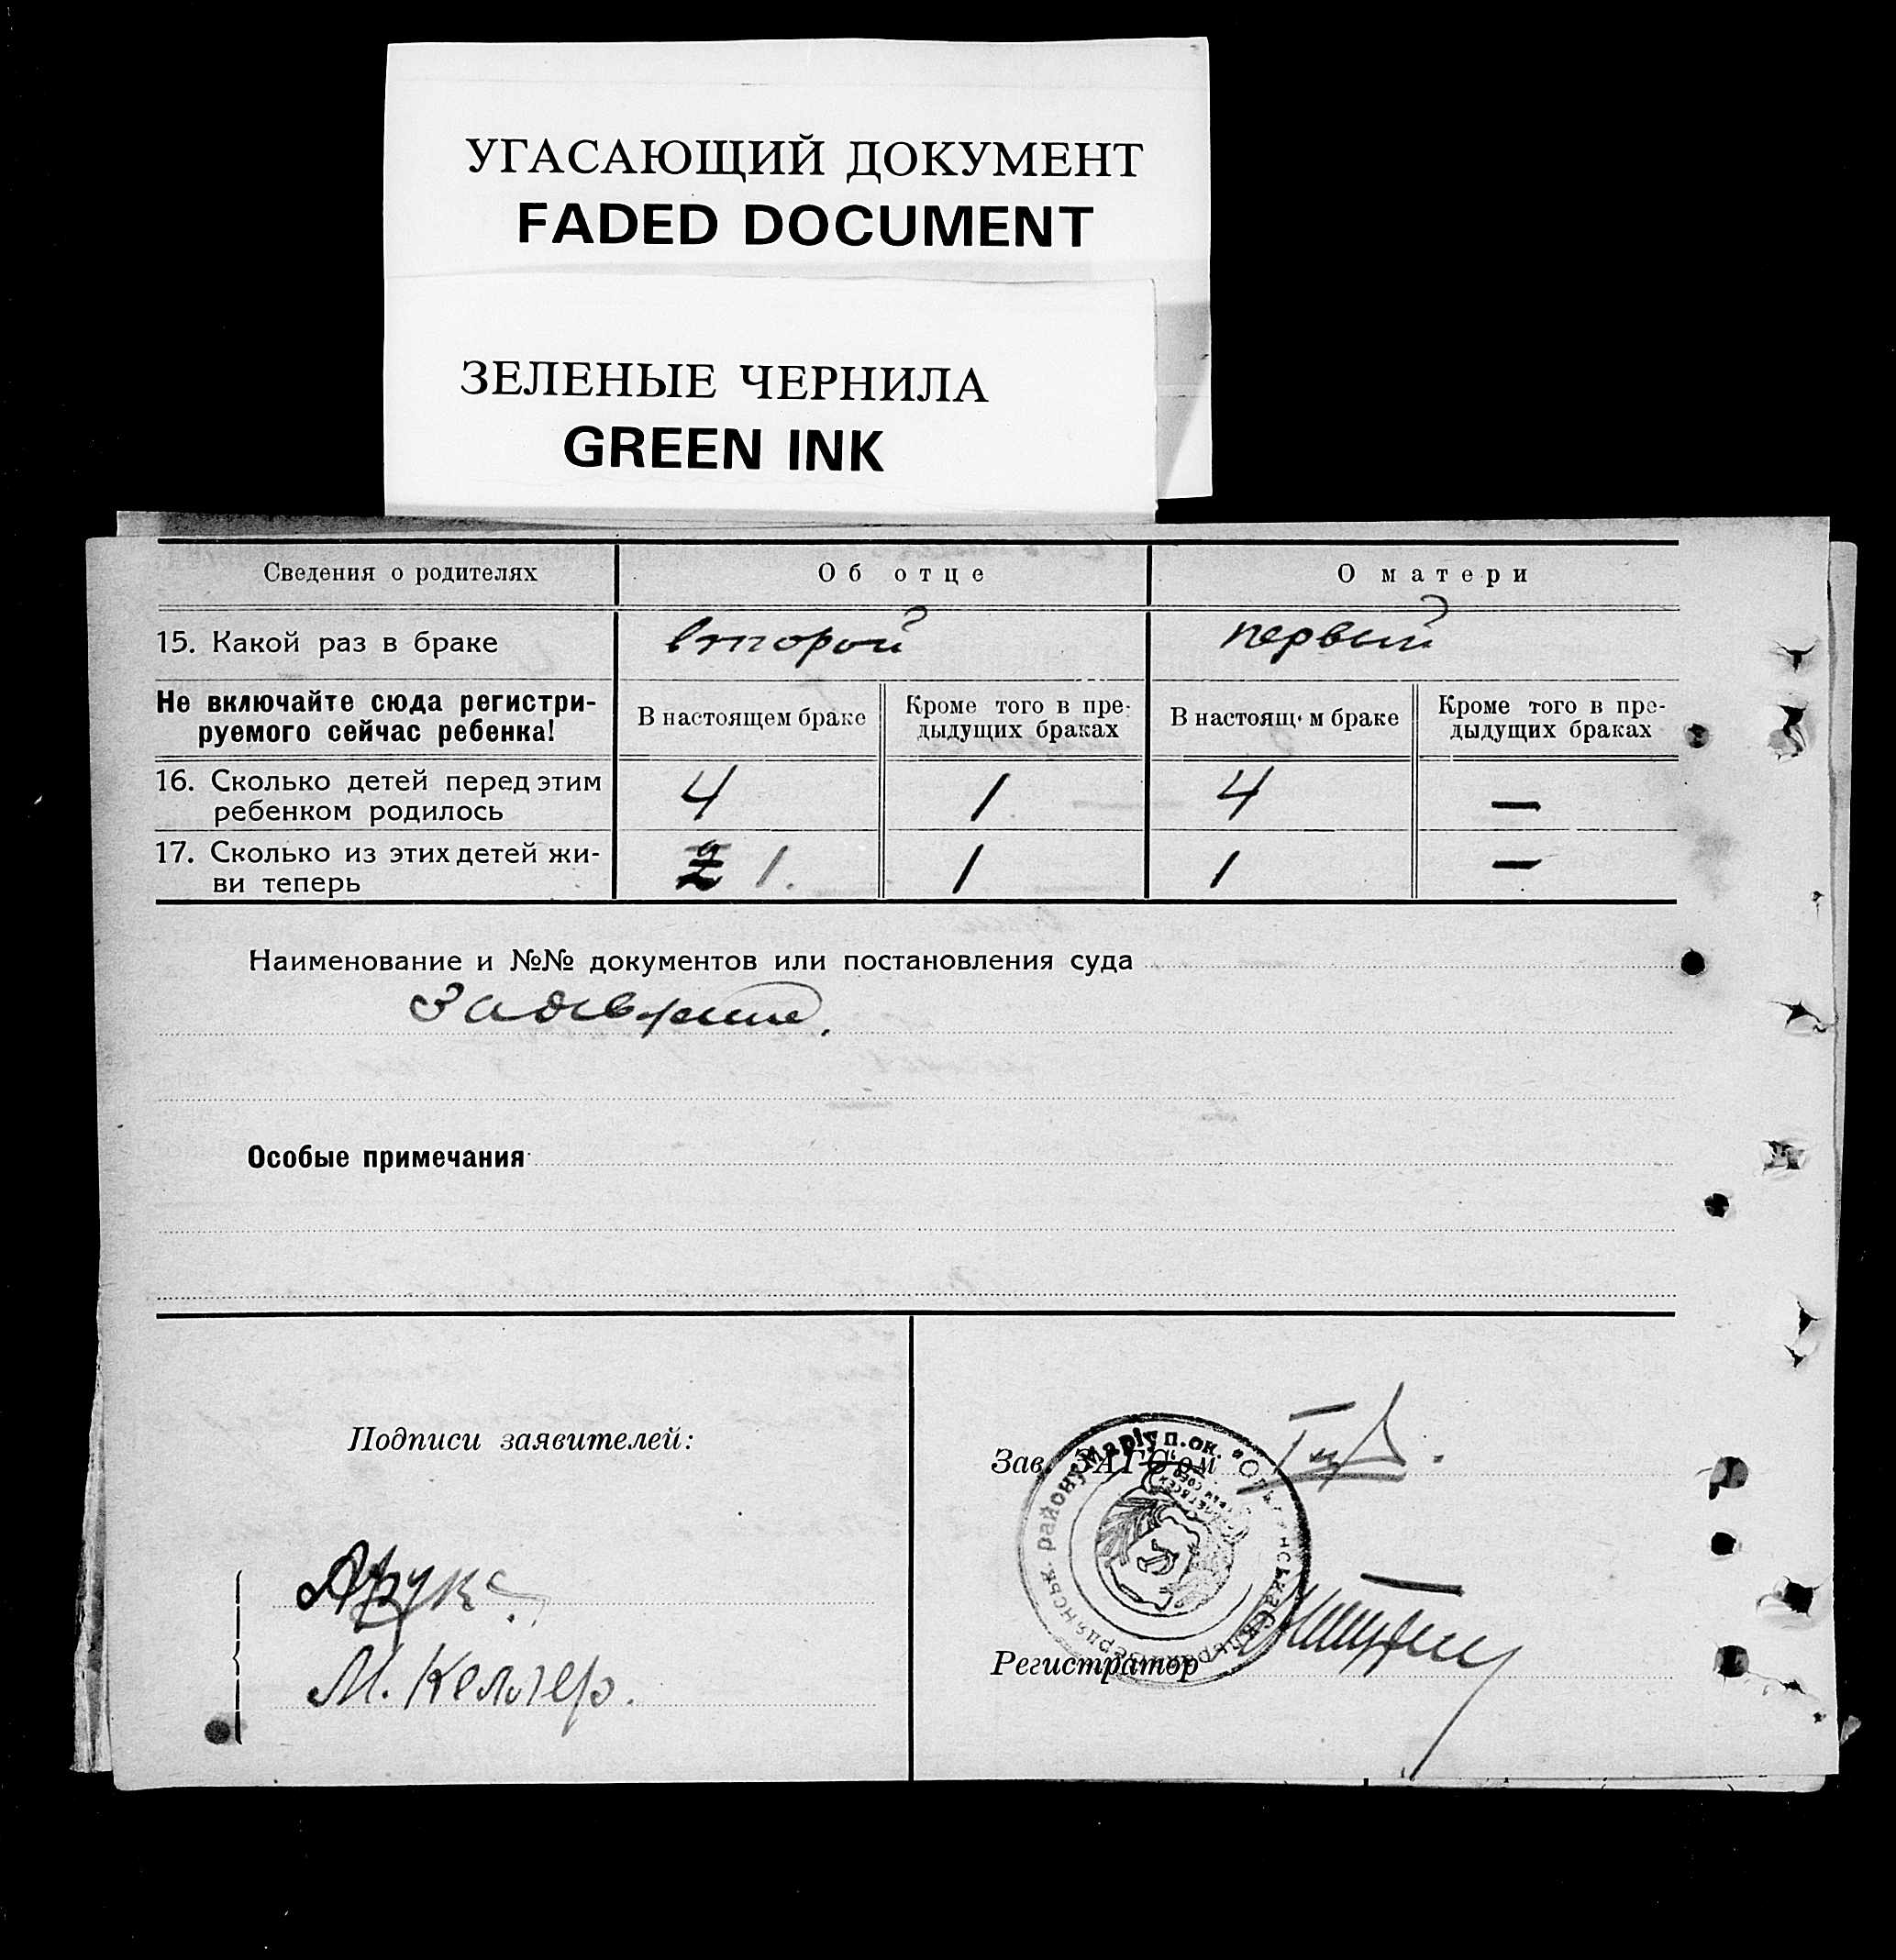 УГАСАЮЩИЙ ДОКУМЕНТ
FADED DOCUMENT
ЗЕЛЕНЫЕ ЧЕРНИЛА
GREEN INK
Сведения о родителях
Об отце
О матери
15. Какой раз в браке
второй
первый
Не включайте сюда регистри-
руемого сейчас ребенка!
В настоящем браке
Кроме того в пре-
дыдущих браках
В настоящ м браке
Кроме того в пре-
дыдущих браках
16. Сколько детей перед этим
ребенком родилось
4
1
4
—
17. Сколько из этих детей жи-
ви теперь
1.
1
1
—
Наименование и №№ документов или постановления суда
Особые примечания
Подписи заявителей:
М. Келлер.
Зав. ЗАГСом
Регистратор
район Маріуп.ок.